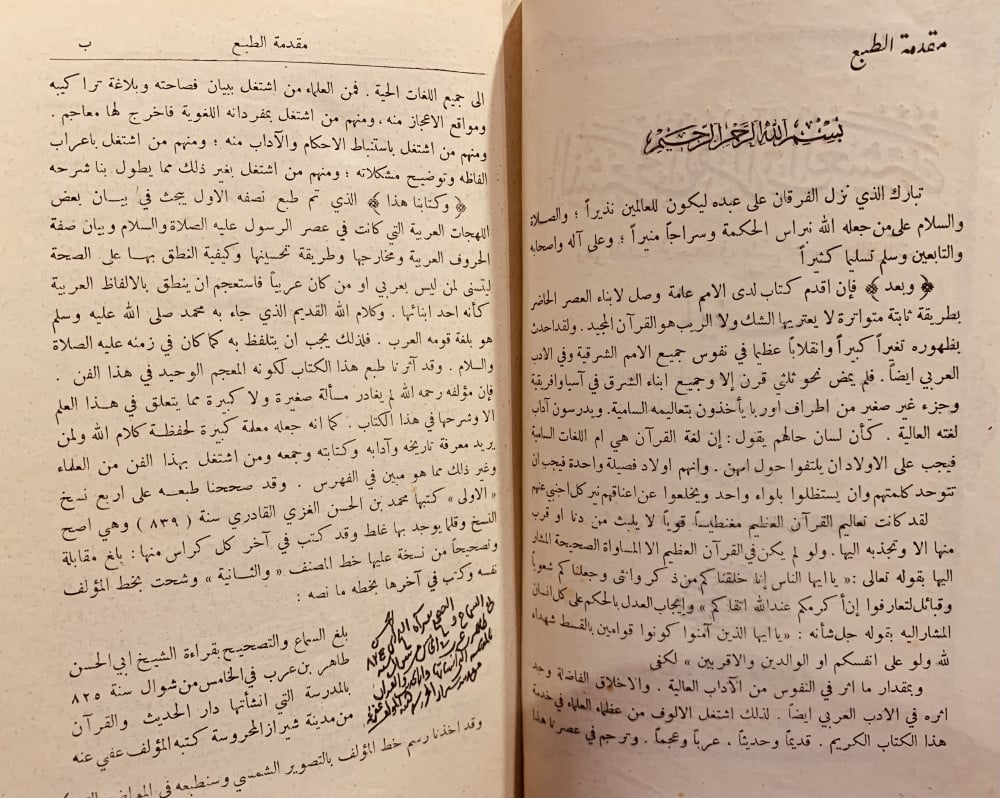 مقدمة الطبع
بسم الله الرحمن الرحيم
تبارك الذي نزل الفرقان على عبده ليكون للعالمين نذيراً ؛ والصلاة
والسلام على من جعله الله نبراس الحكمة وسراجاً منيراً ؛ وعلى آله واصحابه
والتابعين وسلم تسليما كثيراً
﴿ وبعد ﴾ فإن اقدم كتاب لدى الامم عامة وصل لابناء العصر الحاضر
بطريقة ثابتة متواترة لا يعتريها الشك ولا الريب هو القرآن المجيد . ولقد احدث
بظهوره تغيراً كبيراً وانقلاباً عظما في نفوس جميع الامم الشرقية وفي الادب
العربي ايضاً . فلم يمض نحو ثلثي قرن إلا وجميع ابناء الشرق في آسيا وافريقية
وجزء غير صغير من اطراف اوربا يأخذون بتعاليمه السامية . ويدرسون آداب
لغته العالية . كأن لسان حالهم يقول : إن لغة القرآن هي ام اللغات السامية
فيجب على الاولاد ان يلتفوا حول امهن . وانهم اولاد فصيلة واحدة فيجب ان
تتوحد كلمتهم وان يستظلوا بلواء واحد ويخلعوا عن اعناقهم نير كل اجنبي عنهم
لقد كانت تعاليم القرآن العظيم مغنطيساً قوياً لا يلبث من دنا او قرب
منها الا وتجذبه اليها . ولو لم يكن في القرآن العظيم الا المساواة الصحيحة المشار
اليها بقوله تعالى : « يا ايها الناس إنا خلقناكم من ذكر وانثى وجعلناكم شعوباً
وقبائل لتعارفوا إن أكرمكم عند الله اتقاكم » وإيجاب العدل بالحكم على كل انسان
المشار اليه بقوله جل شأنه : « يا ايها الذين آمنوا كونوا قوامين بالقسط شهداء
لله ولو على انفسكم او الوالدين والاقربين » لكفى
وبمقدار ما اثر في النفوس من الآداب العالية . والاخلاق الفاضلة وجد
اثره في الادب العربي ايضاً . لذلك اشتغل الالوف من عظماء العلماء في خدمة
هذا الكتاب الكريم . قديماً وحديثاً . عرباً وعجماً . وترجم في عصرنا هذا
مقدمة الطبع ب
الى جميع اللغات الحية . فمن العلماء من اشتغل ببيان فصاحته وبلاغة تراكيبه
ومواقع الاعجاز منه ، ومنهم من اشتغل بمفرداته اللغوية فاخرج لها معاجم .
ومنهم من اشتغل باستنباط الاحكام والآداب منه ؛ ومنهم من اشتغل باعراب
الفاظه وتوضيح مشكلاته ؛ ومنهم من اشتغل بغير ذلك مما يطول بنا شرحه
﴿ وكتابنا هذا ﴾ الذي تم طبع نصفه الاول يبحث في بيان بعض
اللهجات العربية التي كانت في عصر الرسول عليه الصلاة والسلام وبيان صفة
الحروف العربية ومخارجها وطريقة تحسينها وكيفية النطق بها على الصحة
ليتسنى لمن ليس بعربي او من كان عربياً فاستعجم ان ينطق بالالفاظ العربية
كأنه احد ابنائها . وكلام الله القديم الذي جاء به محمد صلى الله عليه وسلم
هو بلغة قومه العرب . فلذلك يجب ان يتلفظ به كما كان في زمنه عليه الصلاة
والسلام . وقد آثرنا طبع هذا الكتاب لكونه المعجم الوحيد في هذا الفن .
فإن مؤلفه رحمه الله لم يغادر مسألة صغيرة ولا كبيرة مما يتعلق في هذا العلم
الا وشرحها في هذا الكتاب . كما انه جعله معلمة كبيرة لحفظة كلام الله ولمن
يريد معرفة تاريخه وآدابه وكتابته وجمعه ومن اشتغل بهذا الفن من العلماء
وغير ذلك مما هو مبين في الفهرس . وقد صححنا طبعه على اربع نسخ
« الاولى » كتبها محمد بن الحسن الغزي القادري سنة ( ٨٣٩ ) وهي اصح
النسخ وقلما يوجد بها غلط وقد كتب في آخر كل كراس منها : بلغ مقابلة
وتصحيحاً من نسخة عليها خط المصنف « والثانية » وشحت بخط المؤلف
نفسه وكتب في آخرها بخطه ما نصه :
بلغ السماع والتصحيح بقراءة الشيخ ابي الحسن
طاهر بن عرب في الخامس من شوال سنة ٨٢٥
بالمدرسة التي انشأتها دار الحديث والقرآن
من مدينة شيراز المحروسة كتبه المؤلف عفي عنه
وقد اخذنا رسم خط المؤلف بالتصوير الشمسي وسنطبعه في